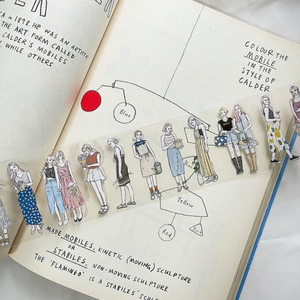 DER
= 1898. HE WAS AN ARTIST
THE ART FORM CALLED
CALDER'S MOBILES
, WHILE OTHERS
COLOUR THE
MOBILE
IN THE
STYLE OF
CALDER
Blue
Yellow
Red
MADE MOBILES, KINETIC (MOVING) SCULPTURE
OR
STABILES, NON-MOVING SCULPTURE
THE 'FLAMINGO' IS A STABILES'